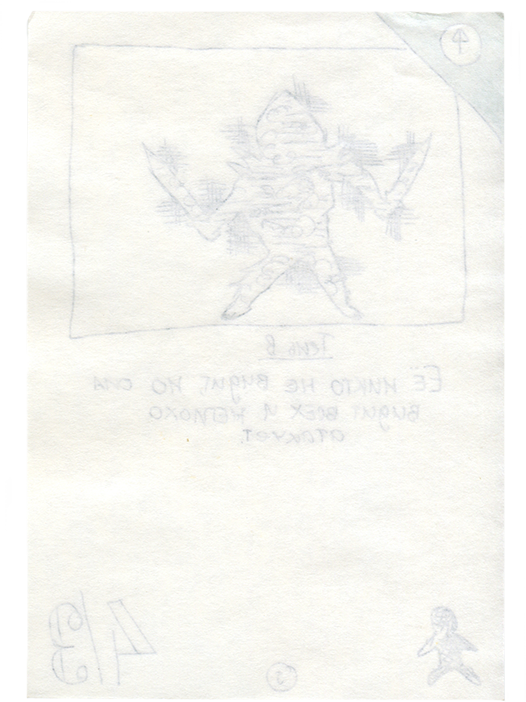 Тень
Её никто не видит, но она
видит всех и неплохо
атакует.
4/3